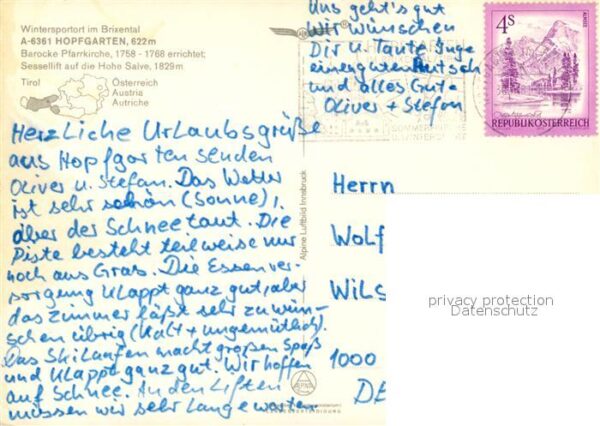 Wintersportort im Brixental
A-6361 HOPFGARTEN, 622m
Barocke Pfarrkirche, 1758 - 1768 errichtet;
Sessellift auf die Hohe Salve, 1829m
Tirol
Österreich
Austria
Autriche
Herzliche Urlaubsgrüße
aus Hopfgarten senden
Oliver u. Stefan. Das Wetter
ist sehr schön (Sonne),
aber der Schnee taut. Die
Piste besteht teilweise nur
noch aus Gras. Die Essenver-
sorgung klappt ganz gut, aber
das Zimmer läßt sehr zu wün-
schen übrig (Kalt + ungemütlich).
Das Skilaufen macht großen Spaß
und klappt ganz gut. Wir hoffen
auf Schnee. An den Liften
müssen wir sehr lange warten.
Uns geht's gut
Wir wünschen
Dir u. Tante Inge
einen guten Rutsch
und alles Gute
Oliver + Stefan
Alpine Luftbild Innsbruck
4S
REPUBLIK ÖSTERREICH
Herrn
Wolf
Wils
1000
DE
privacy protection
Datenschutz